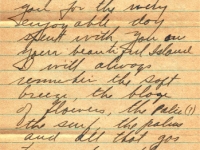 you for the very
enjoyable day
spent with you on
your beautiful Island
I will always
remember the soft
breeze, the
of flowers, the
the surf, the palms
and all that goes